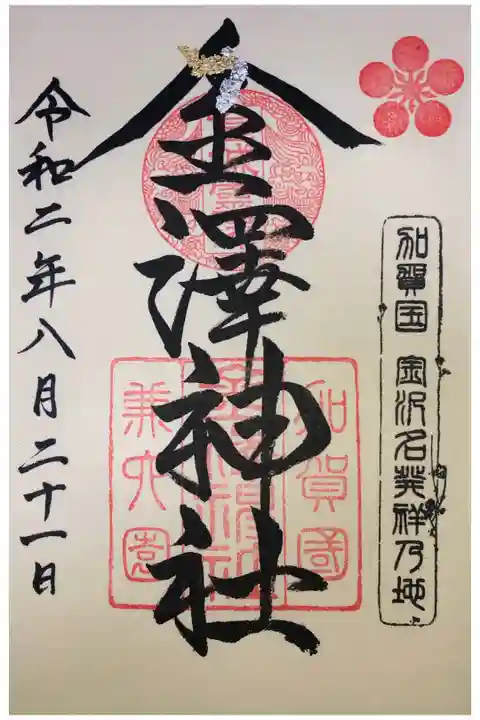 加賀国 金沢名発祥乃地
金澤神社
加賀國
金沢神社
兼六園
令和二年八月二十一日